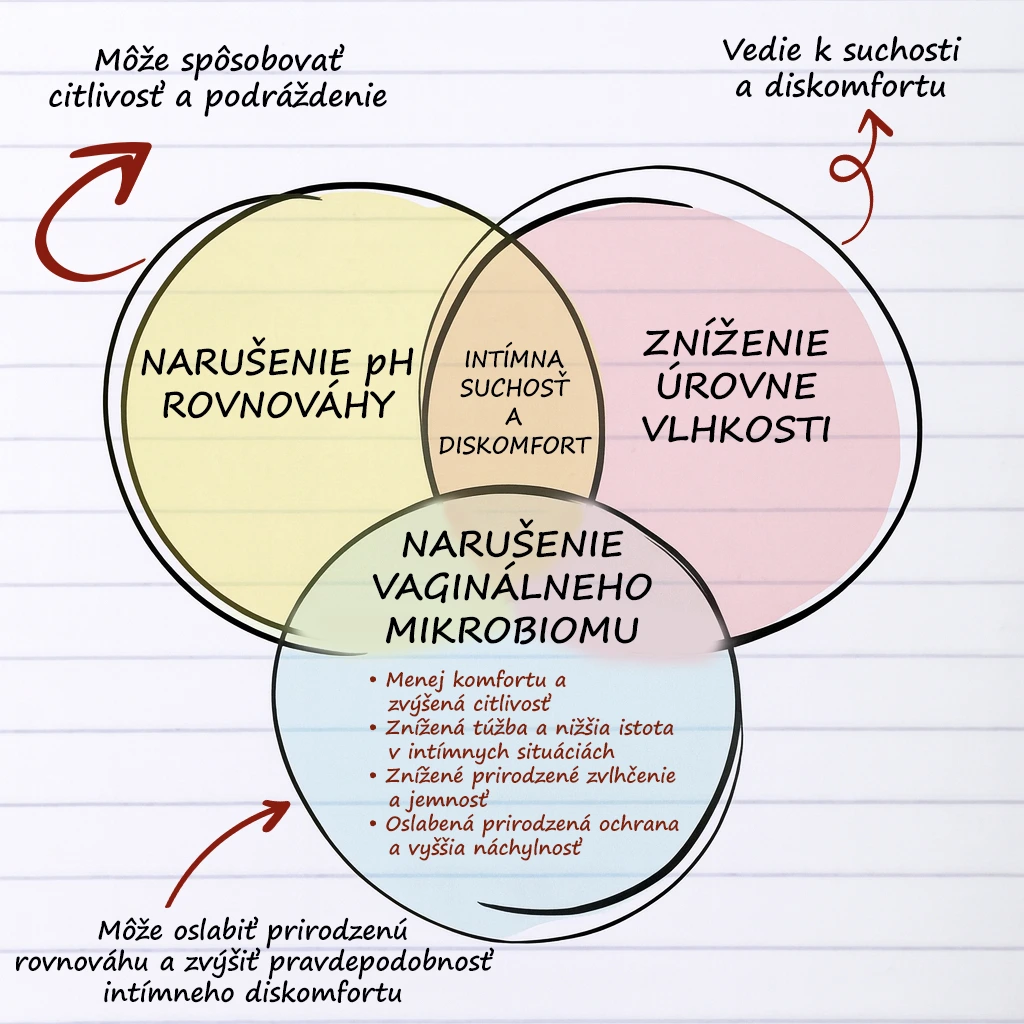 Môže spôsobovať
citlivosť a podráždenie
Vedie k suchosti
a diskomfortu
NARUŠENIE pH
ROVNOVÁHY
INTÍMNA
SUCHOSŤ
A
DISKOMFORT
ZNÍŽENIE
ÚROVNE
VLHKOSTI
NARUŠENIE
VAGINÁLNEHO
MIKROBIOMU
• Menej komfortu a
zvýšená citlivosť
• Znížená túžba a nižšia istota
v intímnych situáciách
• Znížené prirodzené zvlhčenie
a jemnosť
• Oslabená prirodzená ochrana
a vyššia náchylnosť
Môže oslabiť prirodzenú
rovnováhu a zvýšiť pravdepodobnosť
intímneho diskomfortu